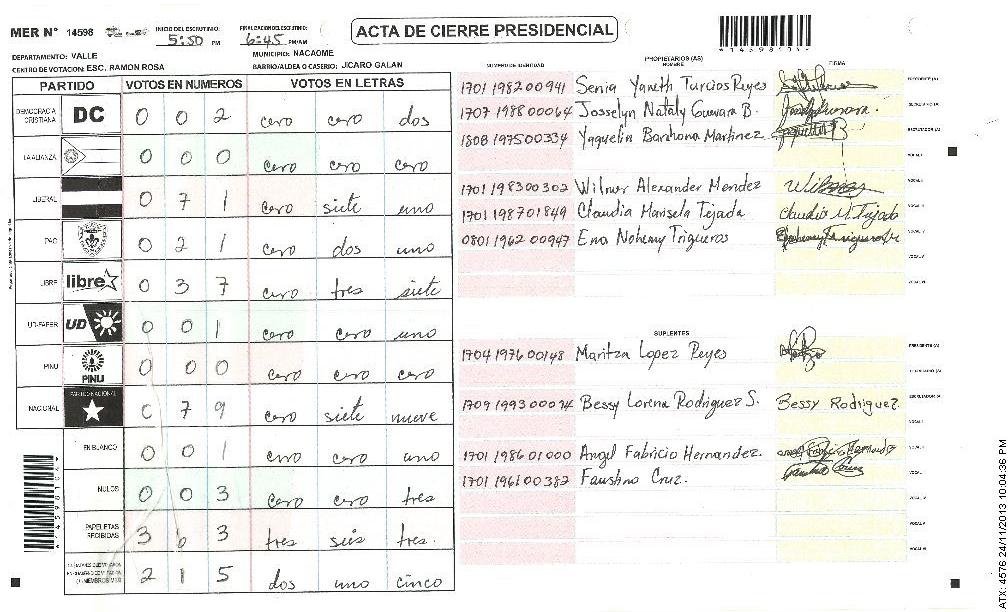 MER Nº 14598 INICIO DEL ESCRUTINIO: 5:50 PM FINALIZACION ESCRUTINIO: 6:45 PM/AM
ACTA DE CIERRE PRESIDENCIAL
DEPARTAMENTO: VALLE MUNICIPIO: NACAOME
CENTRO DE VOTACION: ESC. RAMON ROSA BARRIO/ALDEA O CASERIO: JICARO GALAN
PARTIDO VOTOS EN NUMEROS VOTOS EN LETRAS
DEMOCRACIA CRISTIANA DC 0 0 2 cero cero dos
LA ALIANZA 0 0 0 cero cero cero
LIBERAL 0 7 1 cero siete uno
PAC 0 2 1 cero dos uno
LIBRE libre 0 3 7 cero tres siete
UD-FAPER UD 0 0 1 cero cero uno
PINU PINU 0 0 0 cero cero cero
NACIONAL PARTIDO NACIONAL 0 7 9 cero siete nueve
EN BLANCO 0 0 1 cero cero uno
NULOS 0 0 3 cero cero tres
PAPELETAS RECIBIDAS 3 6 3 tres seis tres.
2 1 5 dos uno cinco
NÚMERO DE IDENTIDAD PROPIETARIOS (AS) NOMBRE FIRMA
1701 1982 00941 Senia Yaneth Turcios Reyes PRESIDENTE (A)
1707 1988 00064 Josselyn Nataly Guevara B. SECRETARIO (A)
1808 1975 00334 Yaquelin Barahona Martinez ESCRUTADOR (A)
VOCAL I
1701 1983 00302 Wilmer Alexander Mendez VOCAL II
1701 1987 01849 Claudia Marisela Tejada Claudia M. Tejada VOCAL III
0801 1962 00947 Ena Nohemy Trigueros VOCAL IV
VOCAL V
VOCAL VI
SUPLENTES
1704 1976 00148 Maritza Lopez Reyes PRESIDENTE (A)
SECRETARIO (A)
1709 1993 00074 Bessy Lorena Rodriguez S. Bessy Rodriguez. ESCRUTADOR (A)
VOCAL I
1701 1986 01000 Angel Fabricio Hernandez. VOCAL II
1701 1961 00382 Faustino Cruz. Faustino Cruz VOCAL
VOCAL IV
VOCAL V
VOCAL VI
ATX: 4576 24/11/2013 10:04:36 PM